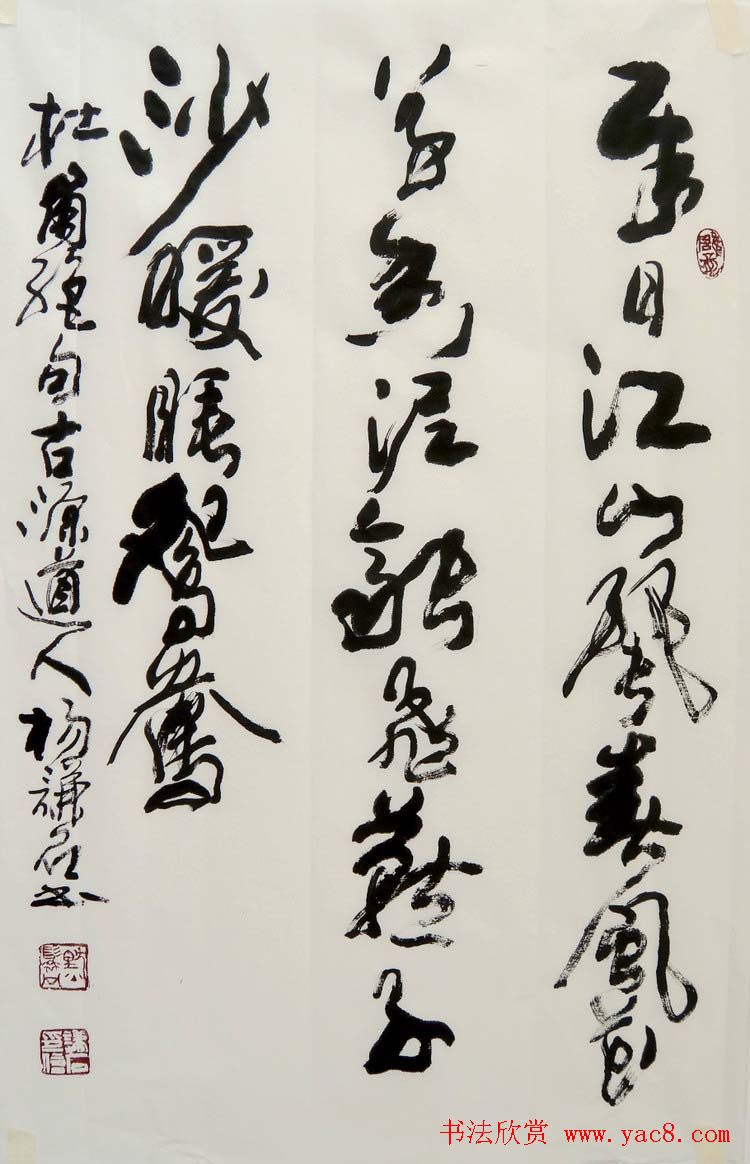 遲日江山麗春風花
草香泥融飛燕子
沙暖睡鴛鴦
杜甫絕句古道人楊謙石书
书法欣赏 www.yac8.com